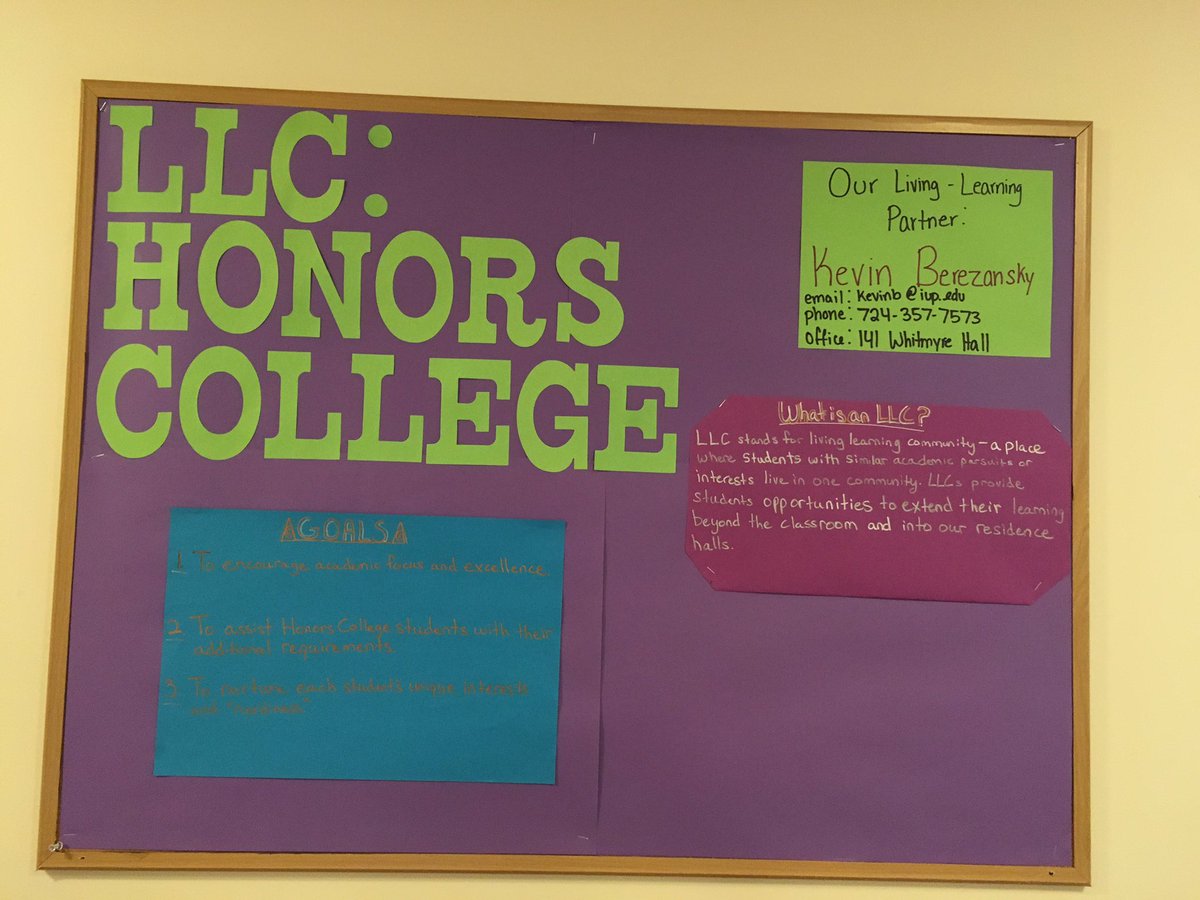 LLC:
HONORS
COLLEGE
Our Living - Learning
Partner:
Kevin Berezansky
email: Kevinb@iup.edu
phone: 724-357-7573
office: 141 Whitmyre Hall
What is an LLC?
LLC stands for living learning community - a place
where students with similar academic pursuits or
interests live in one community. LLCs provide
students opportunities to extend their learning
beyond the classroom and into our residence
halls.
AGOALSA
1. To encourage academic focus and excellence.
2. To assist Honors College students with their
additional requirements.
3. To nurture each student's unique interests
and "nerdiness"